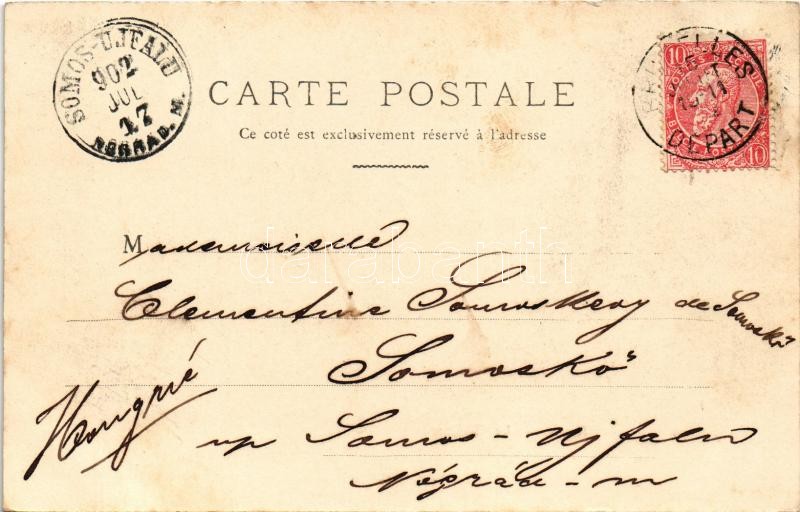 SOMOS-UJFALU
902
JUL
17
NÓGRÁD. M.
BRUXELLES
11
DEPART
10
10
CARTE POSTALE
Ce coté est exclusivement réservé à l'adresse
Mademoiselle
Clementine Somoskeoy de Somoskő
Somoskő
Hongrié
up Somos-Ujfalu
Nógrád-m
darabanth